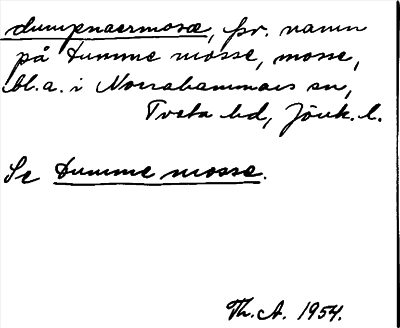 dumpnaermosæ, pr. namn
på Dumme mosse, mosse,
bl.a. i Norrahammars sn,
Tveta hd, Jönk. l.
Se Dumme mosse.
Th. A. 1954.